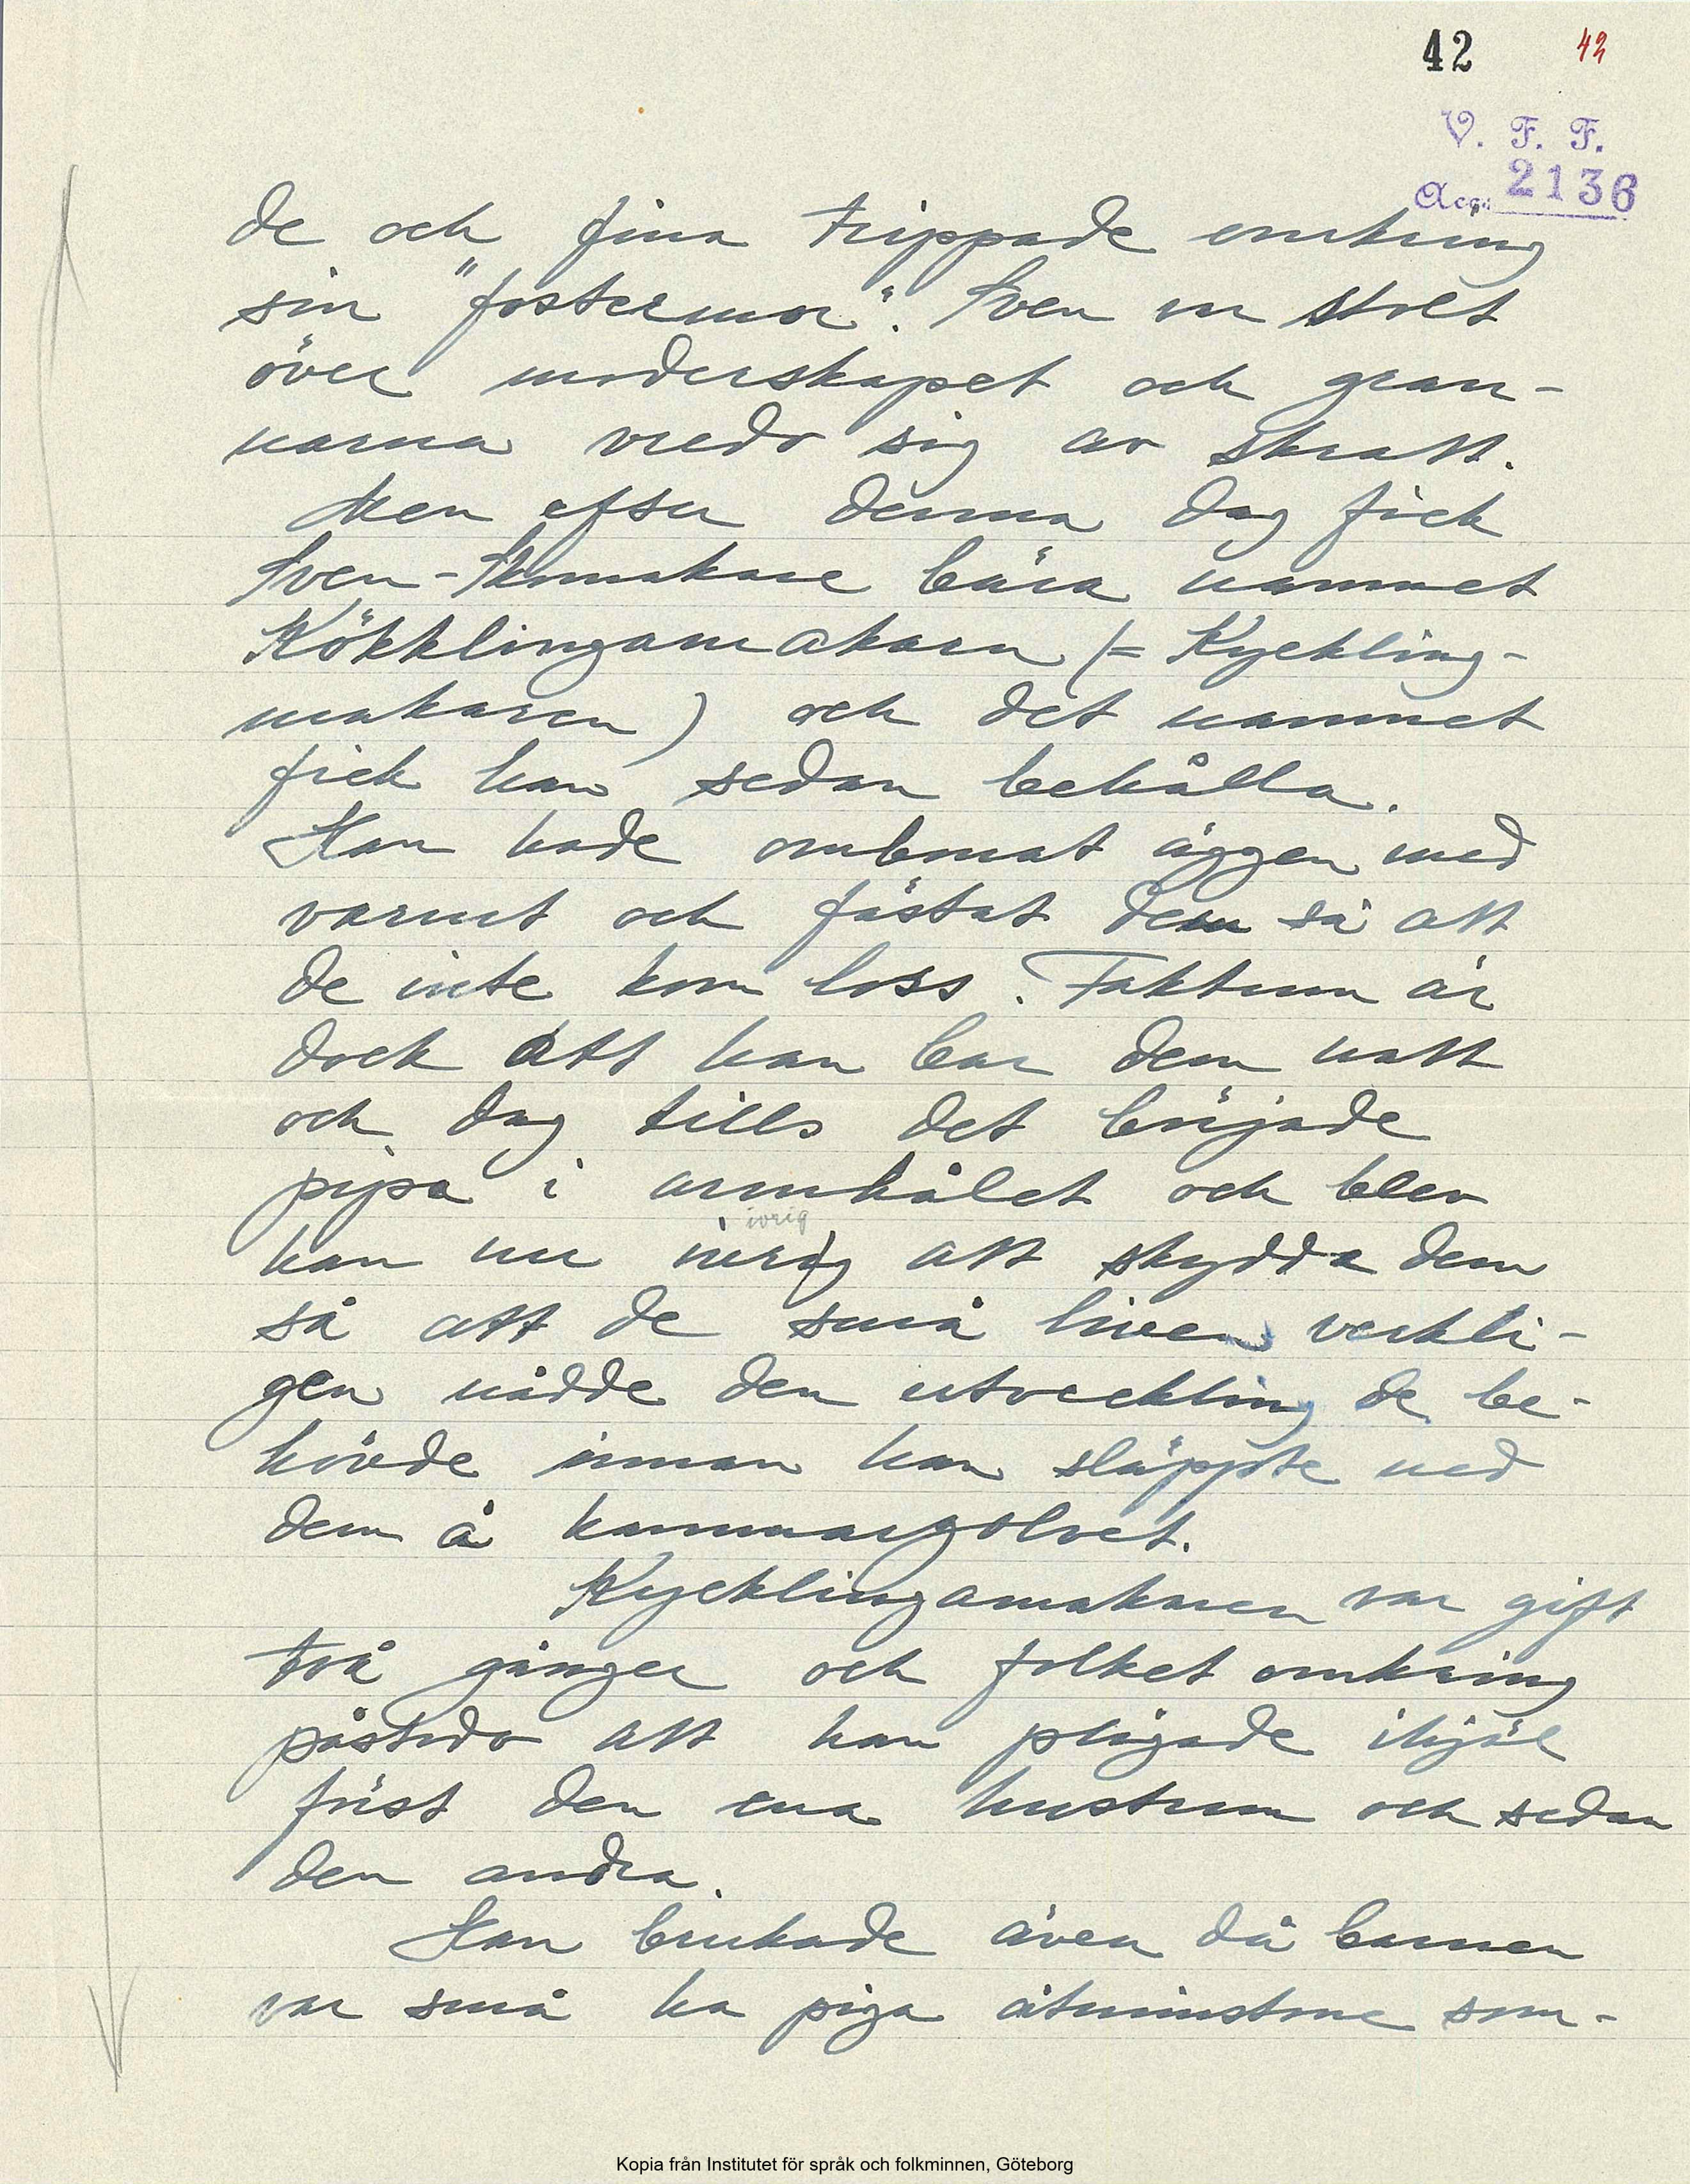 42 42
V. F. F.
Acc. 2136
de och fina trippade omkring
sin "fostermor". Sven var stolt
över moderskapet och gran-
narna vredo sig av skratt.
Men efter denna dag fick
Sven-Skomakare bära namnet
Kökklingamakarn (= Kyckling-
makaren) och det namnet
fick han sedan behålla.
Han hade ombonat äggen med
varmt och fästat dem så att
de inte kom loss. Faktum är
dock att han bar dem natt
och dag tills det började
pipa i armhålet och blev
ivrig
han nu ivrig att skydda dem
så att de små liven verkli-
gen nådde den utveckling de be-
hövde innan han släppte ned
dem å kammargolvet.
Kycklingamakaren var gift
två gånger och folket omkring
påstodo att han plågade ihjäl
först den ena hustrun och sedan
den andra.
Han brukade även då barnen
var små ha piga åtminstone som-
Kopia från Institutet för språk och folkminnen, Göteborg